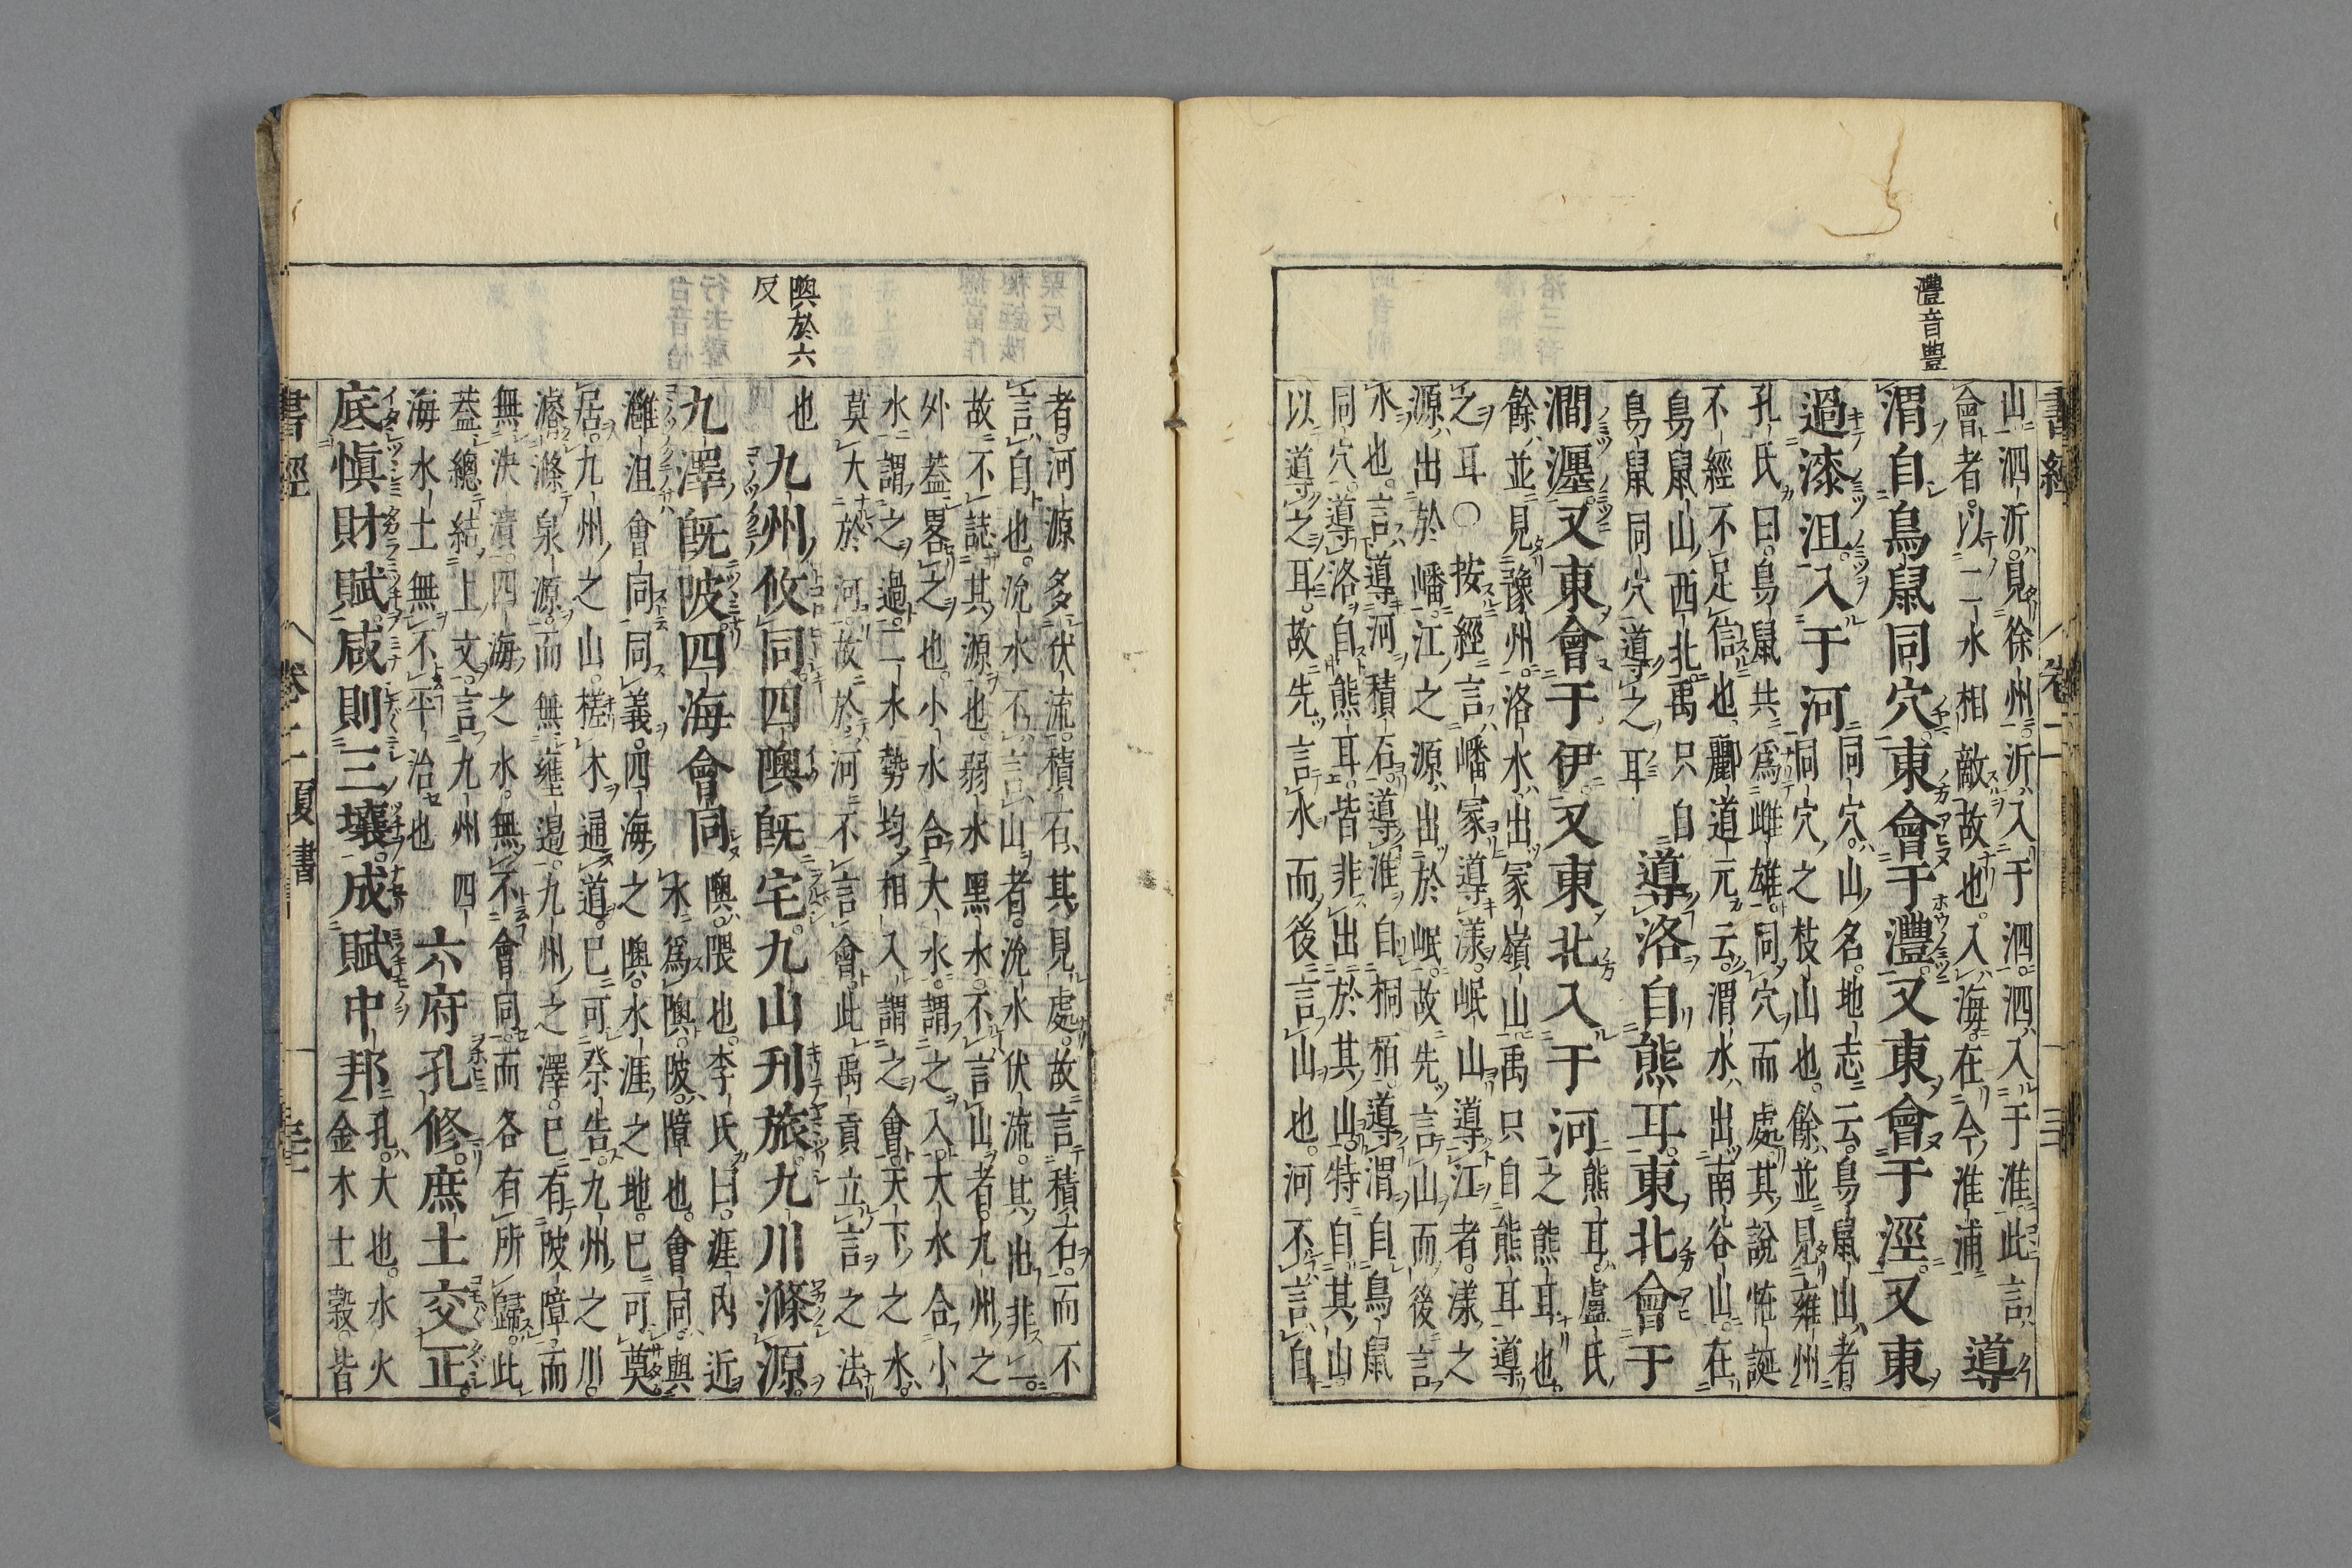 灃音豐
山泗沂見徐州沂入于泗泗入于淮此言
會者以二水相敵故也入海在今淮浦
導
渭自鳥鼠同穴東會于灃又東會于涇又東
過漆沮入于河
同穴山名地志云鳥鼠山者
同穴之枝山也餘並見雍州
孔氏曰鳥鼠共爲雌雄同穴而處其說恠誕
不經不足信也酈道元云渭水出南谷山在
鳥鼠山西北禹只自
鳥鼠同穴導之耳
導洛自熊耳東北會于
澗瀍又東會于伊又東北入于河
熊耳盧氏
之熊耳也
餘並見豫州洛水出冢嶺山禹只自熊耳導
之耳○按經言嶓冢導漾岷山導江者漾之
源出於嶓江之源出於岷故先言山而後言
水也言導河積石導淮自桐栢導渭自鳥鼠
同穴導洛自熊耳皆非出於其山特自其山
以導之耳故先言水而後言山也河不言自
隩於六
反
者河源多伏流積石其見處故言積石而不
言自也沇水不言山者沇水伏流其出非一
故不誌其源也弱水黑水不言山者九州之
外蓋畧之也小水合大水謂之入大水合小
水謂之過二水勢均相入謂之會天下之水
莫大於河故於河不言會此禹貢立言之法
也
九州攸同四隩旣宅九山刊旅九川滌源
九澤旣陂四海會同
隩隈也李氏曰涯內近
水爲隩陂障也會同與
灉沮會同同義四海之隩水涯之地已可莫
居九州之山槎木通道已可祭告九州之川
濬滌泉源而無壅遏九州之澤已有陂障而
無決潰四海之水無不會同而各有所歸此
蓋總結上文言九州四
海水土無不平治也
六府孔修庶土交正
底愼財賦咸則三壤成賦中邦
孔大也水火
金木土穀皆
書經
卷二
夏書